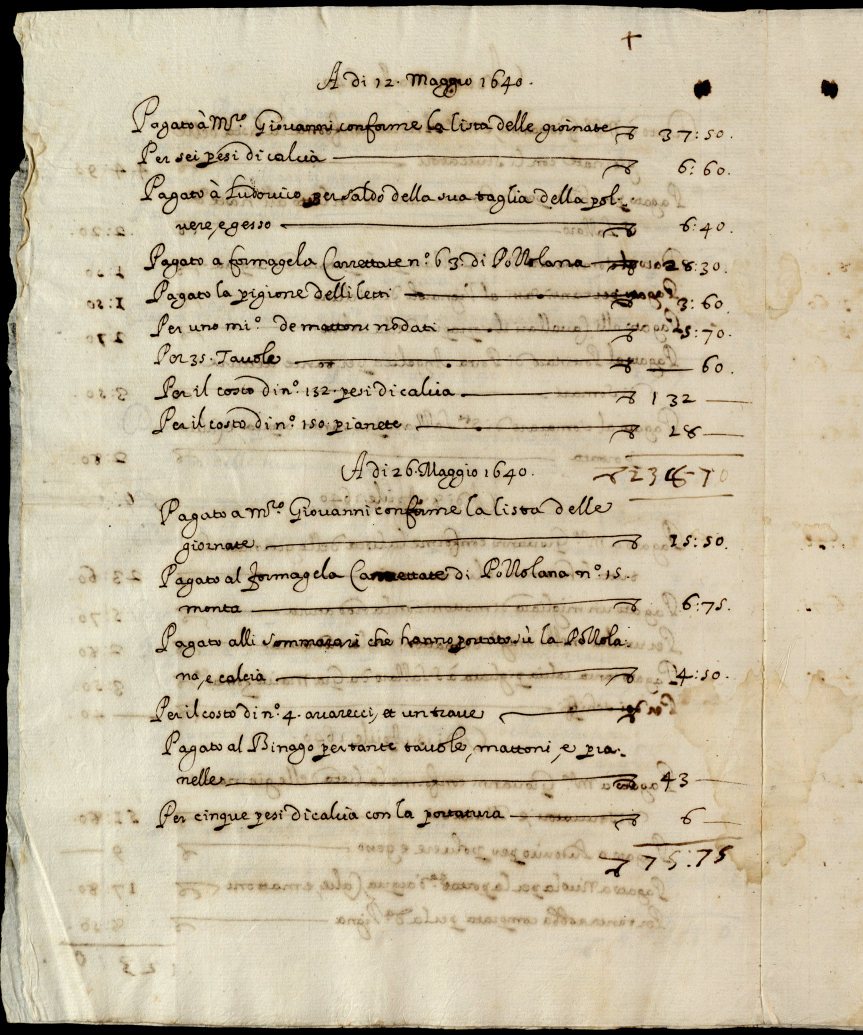 +
A di 12. Maggio 1640.
Pagato à Mro. Giovanni conforme la lista delle giornate 37:50.
Per sei pesi di calcia 6:60.
Pagato à Ludovico, per saldo della sua taglia della pol-
vere, e gesso 6:40.
Pagato a formagela Carrettate n.o 63. di Pozzolana 28:30.
Pagato la pigione delli letti 3:60.
Per uno mi.o de mattoni 5:70.
Per 35. Tavole 60.
Per il costo di n.o 132. pesi di calcia 132
Per il costo di n.o 150. pianete 18
A di 26. Maggio 1640. 70
Pagato a mro. Giovanni conforme la lista delle
giornate 15:50.
Pagato al formagela Carrettate di Pozzolana n.o 15.
monta 6:75.
Pagato alli sommarari che hanno portato sù la Pozzola-
na, e calcia 4:50.
Per il costo di n.o 4. et un trave
Pagato al Binago per tante tavole, mattoni, e pia-
nelle 43
Per cinque pesi di calcia con la portatura 6
75:75